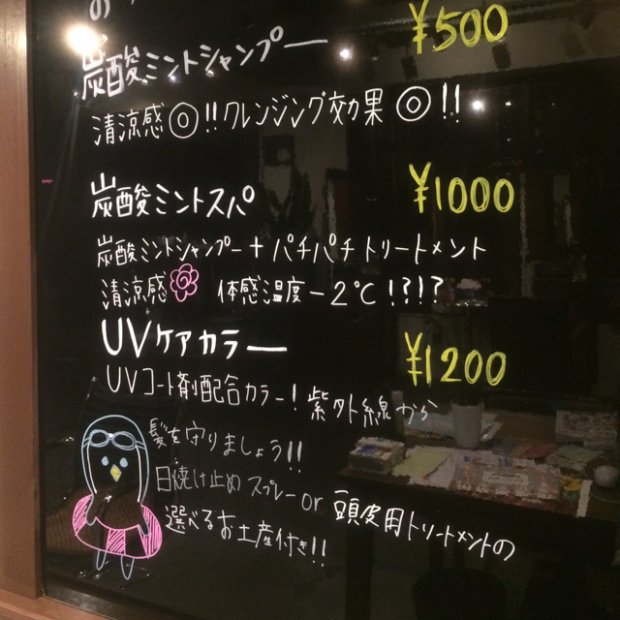 の
炭酸ミントシャンプー ¥500
清涼感◎!!クレンジング効果◎!!
炭酸ミントスパ ¥1000
炭酸ミントシャンプー+パチパチトリートメント
清涼感 体感温度-2℃!?!?
UVケアカラー ¥1200
UVコート剤配合カラー!紫外線から
髪を守りましょう!!
日焼け止めスプレーor頭皮用トリートメントの
選べるお土産付き!!